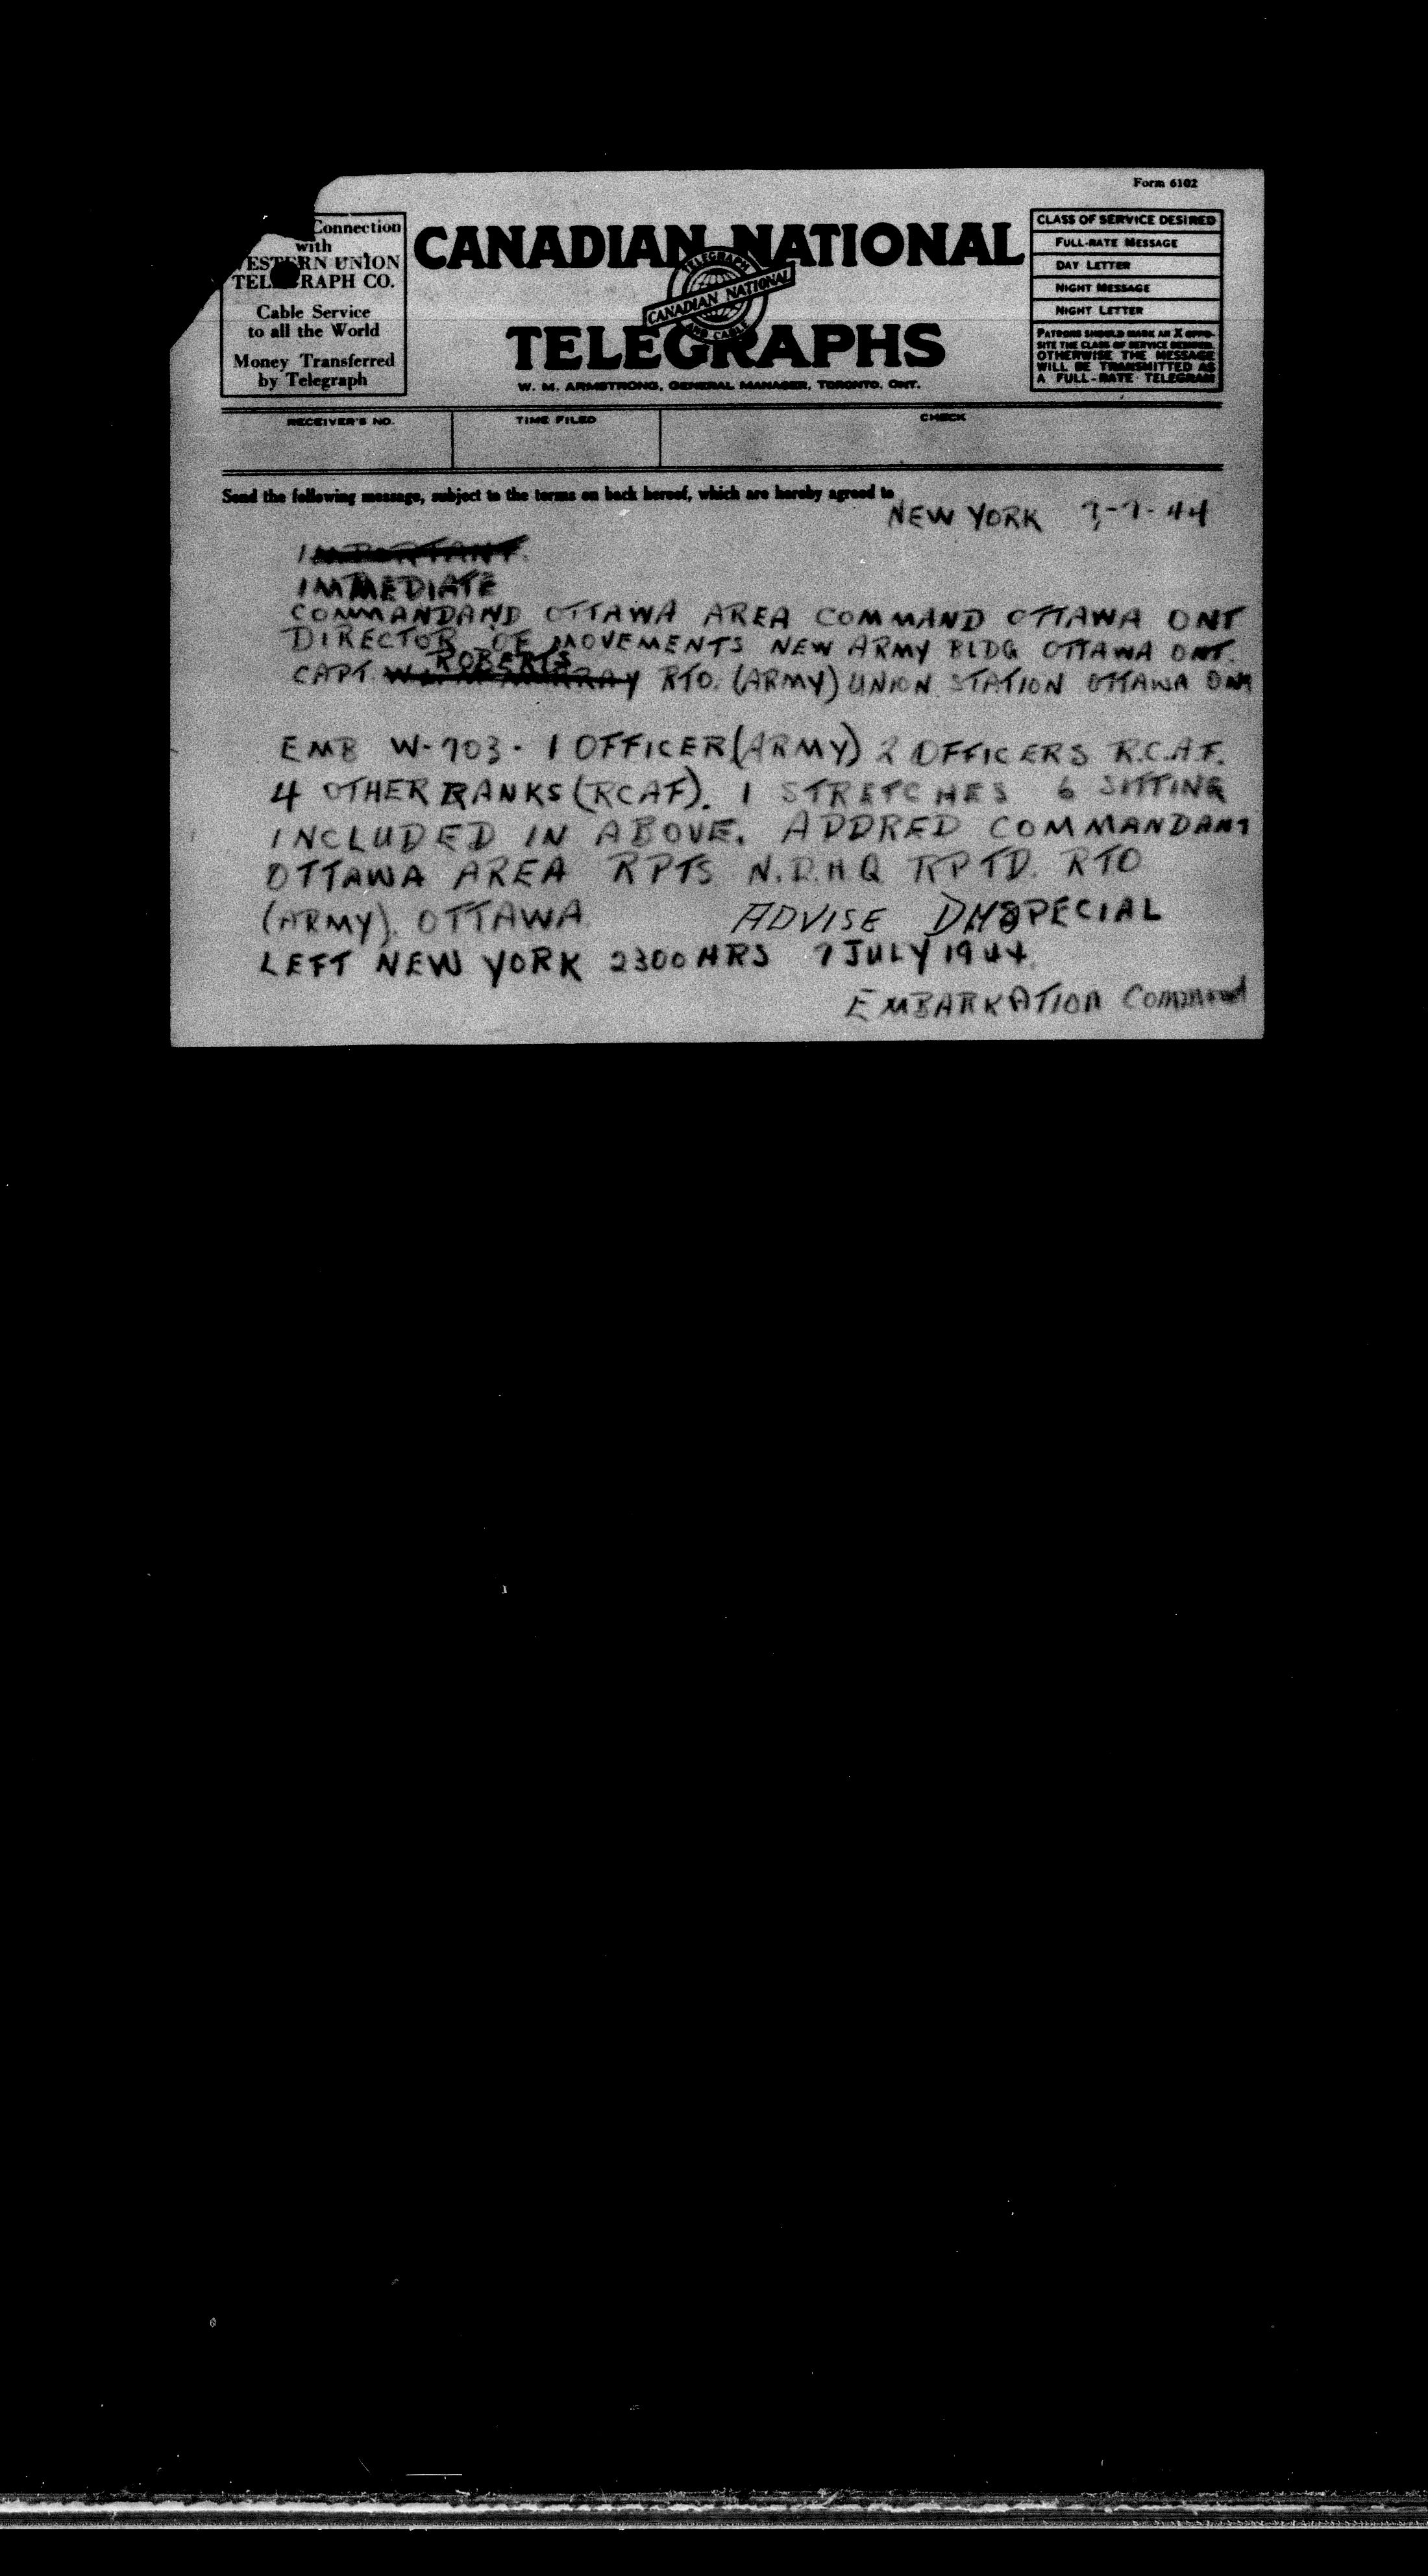 Form 6102
Connection
with
WESTERN UNION
TELEGRAPH CO.
Cable Service
to all the World
Money Transferred
by Telegraph
CANADIAN NATIONAL
TELEGRAPH
CANADIAN NATIONAL
AND CABLE
TELEGRAPHS
W. M. ARMSTRONG, GENERAL MANAGER, TORONTO, ONT.
CLASS OF SERVICE DESIRED
FULL-RATE MESSAGE
DAY LETTER
NIGHT MESSAGE
NIGHT LETTER
PATRONS SHOULD MARK AN X OPPO-
SITE THE CLASS OF SERVICE DESIRED.
OTHERWISE THE MESSAGE
WILL BE TRANSMITTED AS
A FULL-RATE TELEGRAM
RECEIVER'S NO. TIME FILED CHECK
Send the following message, subject to the terms on back hereof, which are hereby agreed to
NEW YORK 7-7-44
IMPORTANT
IMMEDIATE
COMMANDAND OTTAWA AREA COMMAND OTTAWA ONT
DIRECTOR OF MOVEMENTS NEW ARMY BLDG OTTAWA ONT.
CAPT. ROBERTS RTO. (ARMY) UNION STATION OTTAWA ONT
EMB W-703 - 1 OFFICER (ARMY) 2 OFFICERS R.C.A.F.
4 OTHER RANKS (RCAF). 1 STRETCHES 6 SITTING
INCLUDED IN ABOVE. ADDRED COMMANDANT
OTTAWA AREA RPTS N.D.H.Q RPTD. RTO
(ARMY). OTTAWA ADVISE SPECIAL
LEFT NEW YORK 2300 HRS 7 JULY 1944.
EMBARKATION